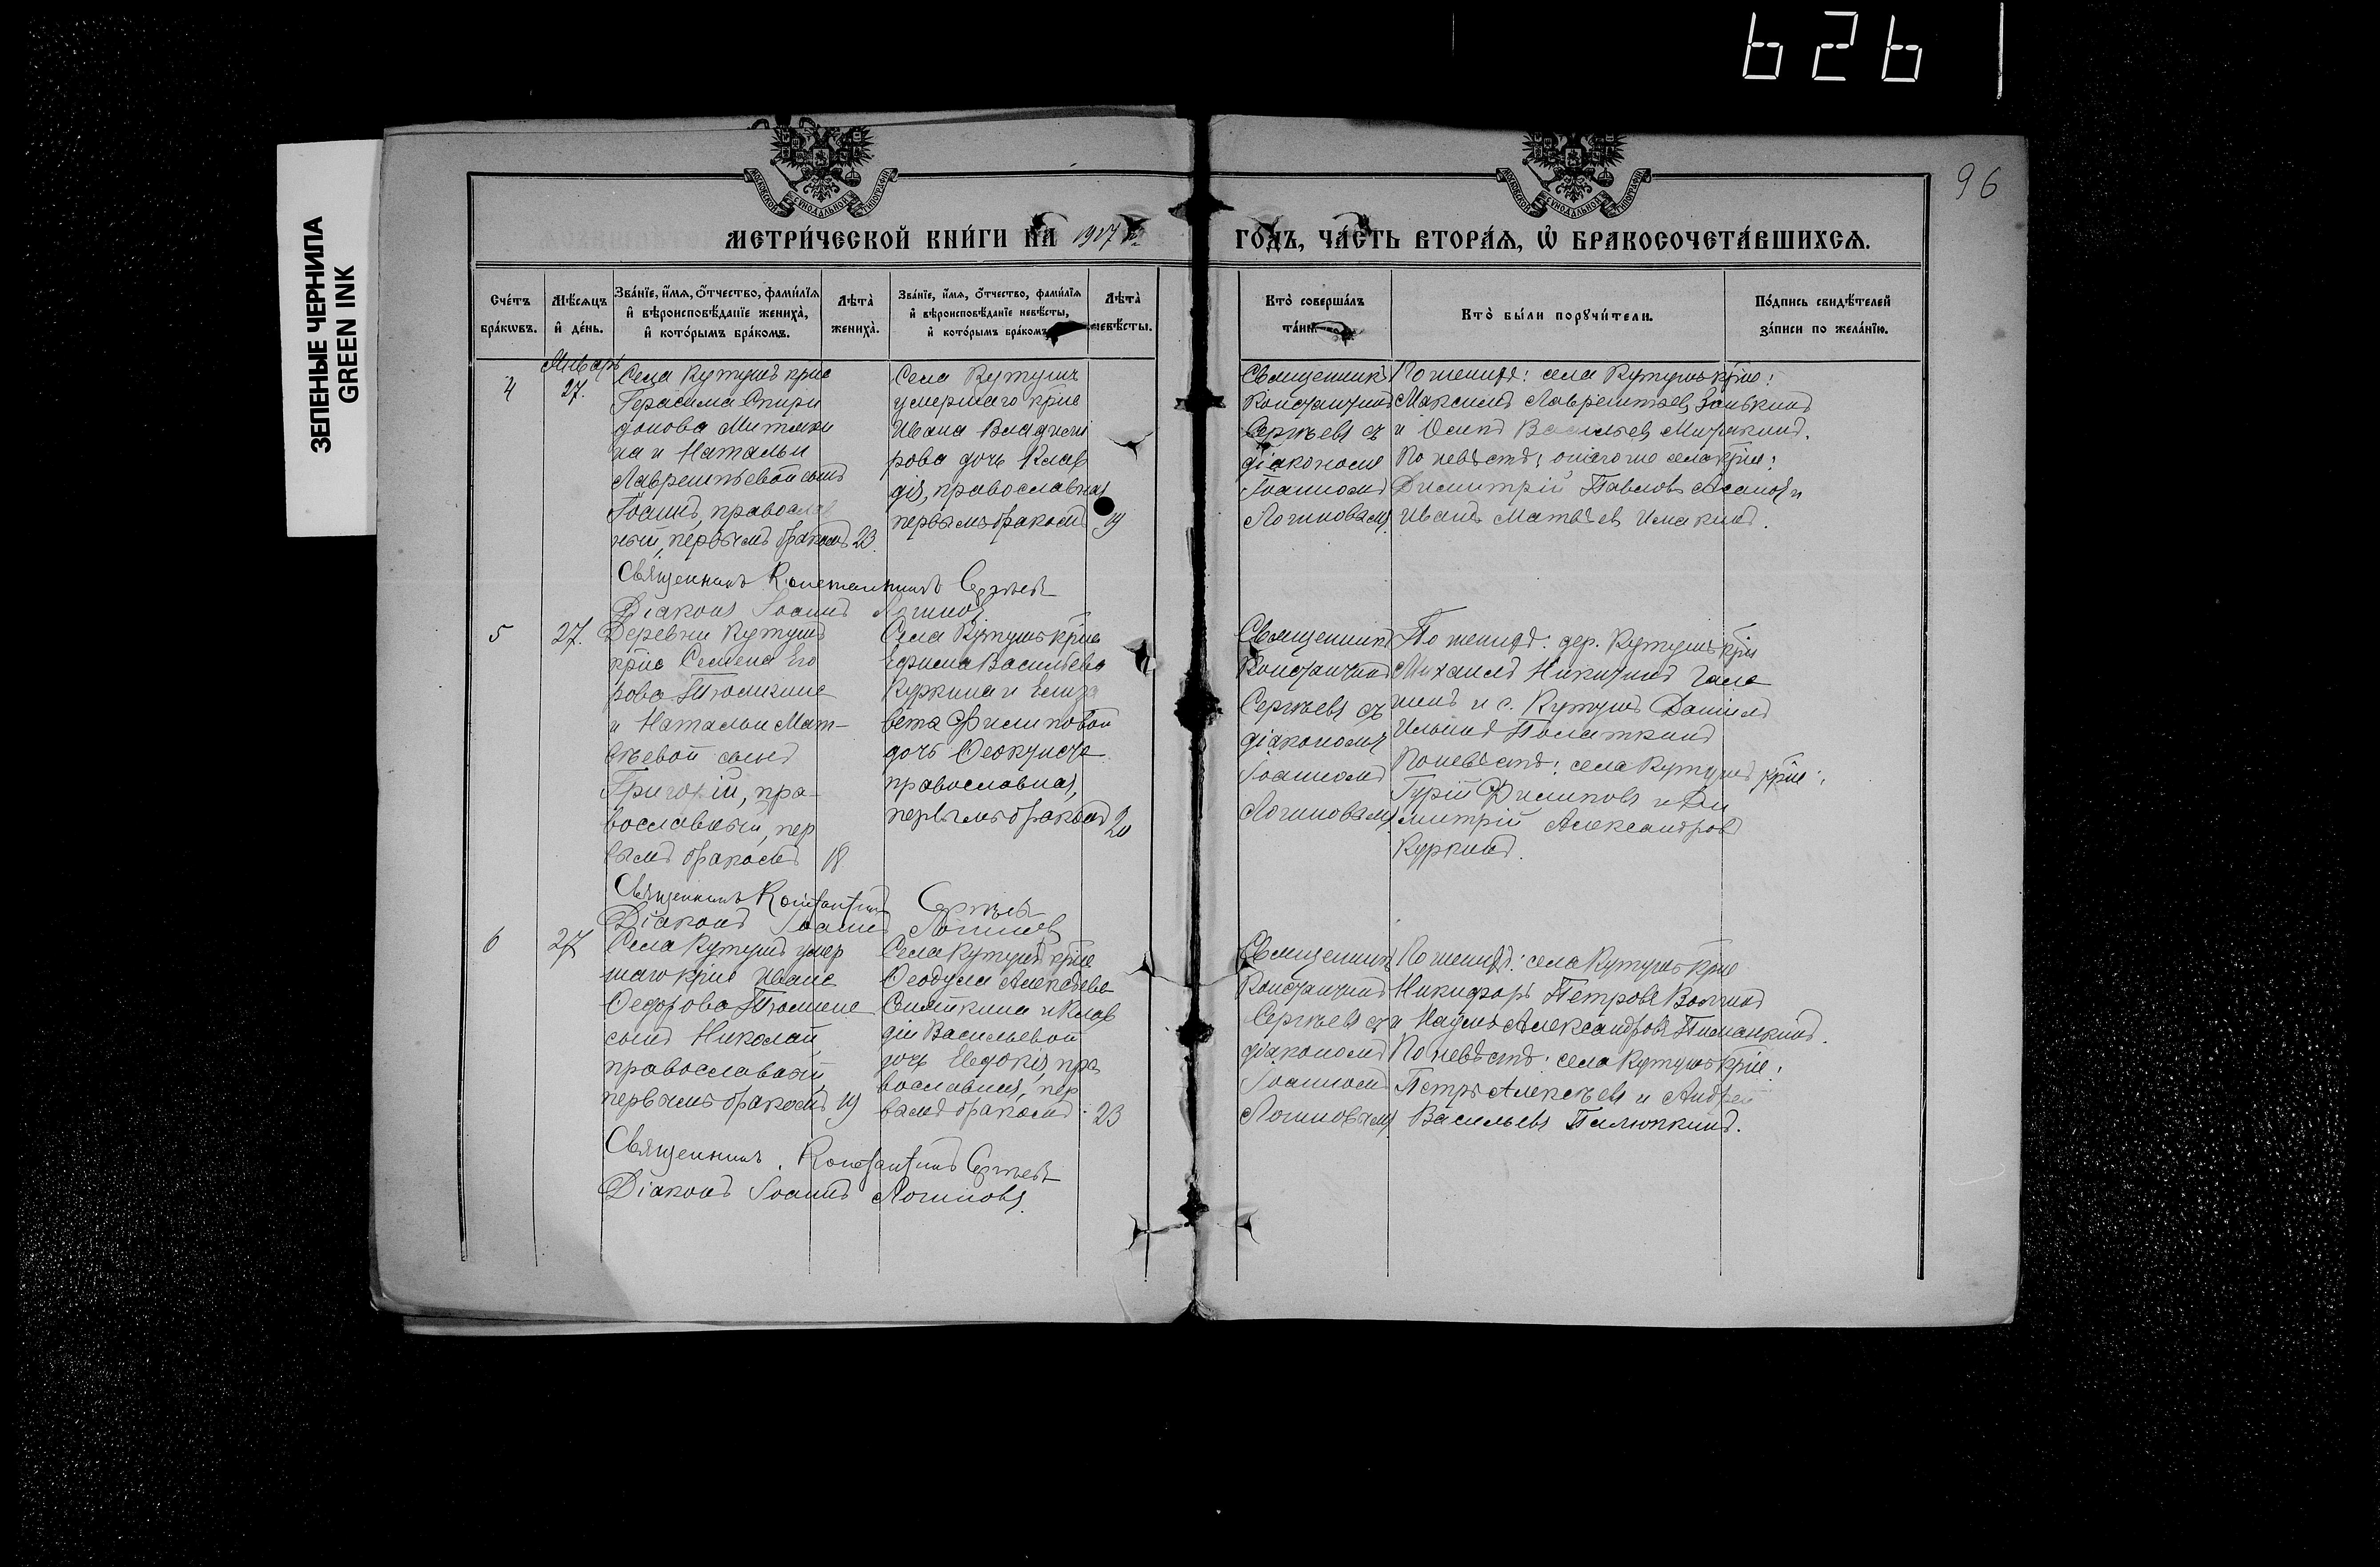 626
96
ЗЕЛЕНЫЕ ЧЕРНИЛА
GREEN INK
МЕТРИ́ЧЕСКОЙ КНИ́ГИ НА 1917 й
ГОДЪ, ЧА́СТЬ ВТОРА́Я, Ѽ БРАКОСОЧЕТА́ВШИХСЯ.
Сче́тъ бра́кѡвъ.
Мѣ́сяцъ и҆ де́нь.
Зва́нїе, и҆́мя, о҆́тчество, фами́лїя
и҆ вѣроисповѣ́данїе жениха̀,
и҆ кото́рымъ бра́комъ.
Лѣта̀ жениха̀.
Зва́нїе, и҆́мя, о҆́тчество, фами́лїя
и҆ вѣроисповѣ́данїе невѣ́сты,
и҆ кото́рымъ бра́комъ
Лѣта̀ невѣ́сты.
Кто̀ соверша́лъ
Кто̀ бы́ли порꙋчи́тели.
По́дпись свидѣ́телей
за́писи по жела́нїю.
Январь
4
27.
Села Кутушъ крне
Герасима Спири
донова Митяки
на и Натальи
Лаврентьевой сынъ
Іоаннъ, правосла
ный, первымъ бракомъ 23.
Села Кутушъ
умершаго крне
Ивана Владими
рова дочь Клав
дія, православная
первымъ бракомъ 19
Священникъ
Константинъ
Сергѣевъ съ
діакономъ
Іоанномъ
Логиновымъ
По женихѣ: села Кутушъ крне:
Максимъ Лаврентьевъ Заикинъ
и Осипъ Васильевъ Митякинъ.
По невѣстѣ: онаго же села крне:
Димитрій Павловъ и
Иванъ Матвѣевъ
Священникъ Константинъ Сергѣевъ
Діаконъ Іоаннъ Логиновъ
5
27.
Деревни Кутушъ
крне Семена Его
рова
и Натальи Мат-
вѣевой сынъ
Григорій, пра-
вославный, пер
вымъ бракомъ 18
Села Кутушъ крне
Ефима Васильева
Куркина и Елиза
вета Филиповой
дочь Ѳеоктиста
православная,
первымъ бракомъ 20
Священникъ
Константинъ
Сергѣевъ съ
діакономъ
Іоанномъ
Логиновымъ
По женихѣ: дер. Кутушъ крне
Михаилъ Никитинъ Гала
нинъ и с. Кутушъ Даніилъ
Ильинъ Полаткинъ
По невѣстѣ: села Кутушъ крне:
Гурій Филиповъ и Ди
митрій Александровъ
Куркинъ.
Священникъ Константинъ Сергѣевъ
Діаконъ Іоаннъ Логиновъ
6
27
Села Кутушъ умер
шаго крне Ивана
Ѳедорова
сынъ Николай
православный,
первымъ бракомъ 19
Села Кутушъ крне
Ѳеодула Алексѣева
и Клав
діи Васильевой
дочь Евдокія, пра
вославная, пер
вымъ бракомъ. 23
Священникъ
Константинъ
Сергѣевъ съ
діакономъ
Іоанномъ
Логиновымъ
По женихѣ: села Кутушъ крне
Никифоръ Петровъ Волгинъ
и Наумъ Александровъ
По невѣстѣ: села Кутушъ крне:
Петръ Алексѣевъ и Андрей
Васильевъ
Священникъ Константинъ Сергѣевъ
Діаконъ Іоаннъ Логиновъ.